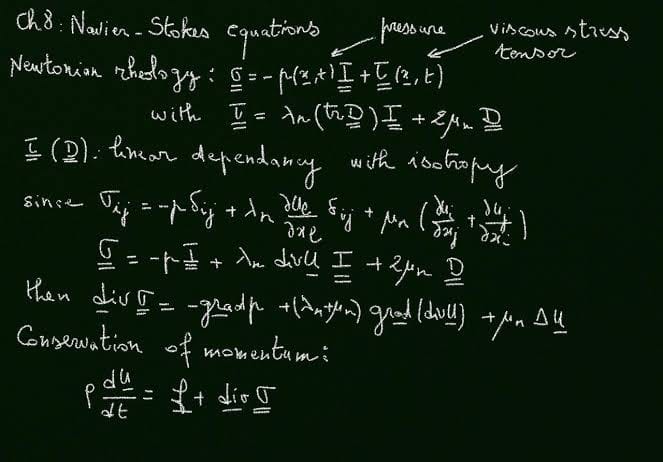 Ch8: Navier-Stokes equations
pressure
viscous stress tensor
Newtonian rheology: σ̳ = -p(x̲,t) I̳ + τ̳(x̲,t)
with τ̳ = λₙ(tr D̳) I̳ + 2μₙ D̳
τ̳(D̳): linear dependancy with isotropy
since σᵢⱼ = -p δᵢⱼ + λₙ ∂uₗ/∂xₗ δᵢⱼ + μₙ (∂uᵢ/∂xⱼ + ∂uⱼ/∂xᵢ)
σ̳ = -p I̳ + λₙ div U̲ I̳ + 2μₙ D̳
then div σ̳ = -grad p + (λₙ+μₙ) grad (div U̲) + μₙ Δ U̲
Conservation of momentum:
ρ dU̲/dt = f̲ + div σ̳